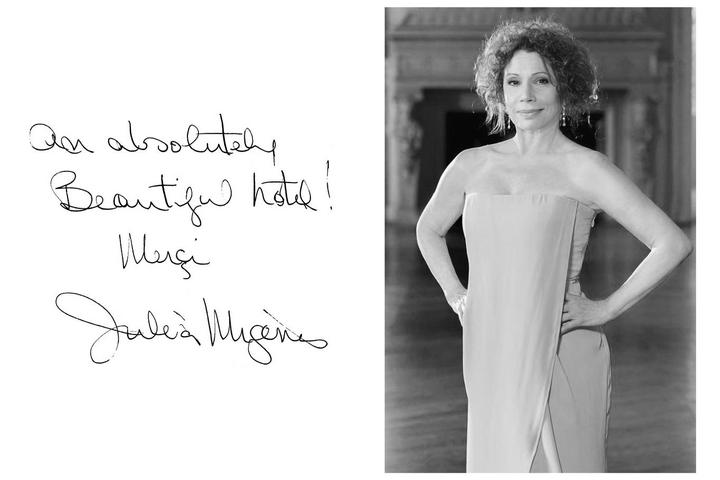 An absolutely
Beautiful hotel!
Merçi
Julià Migènes